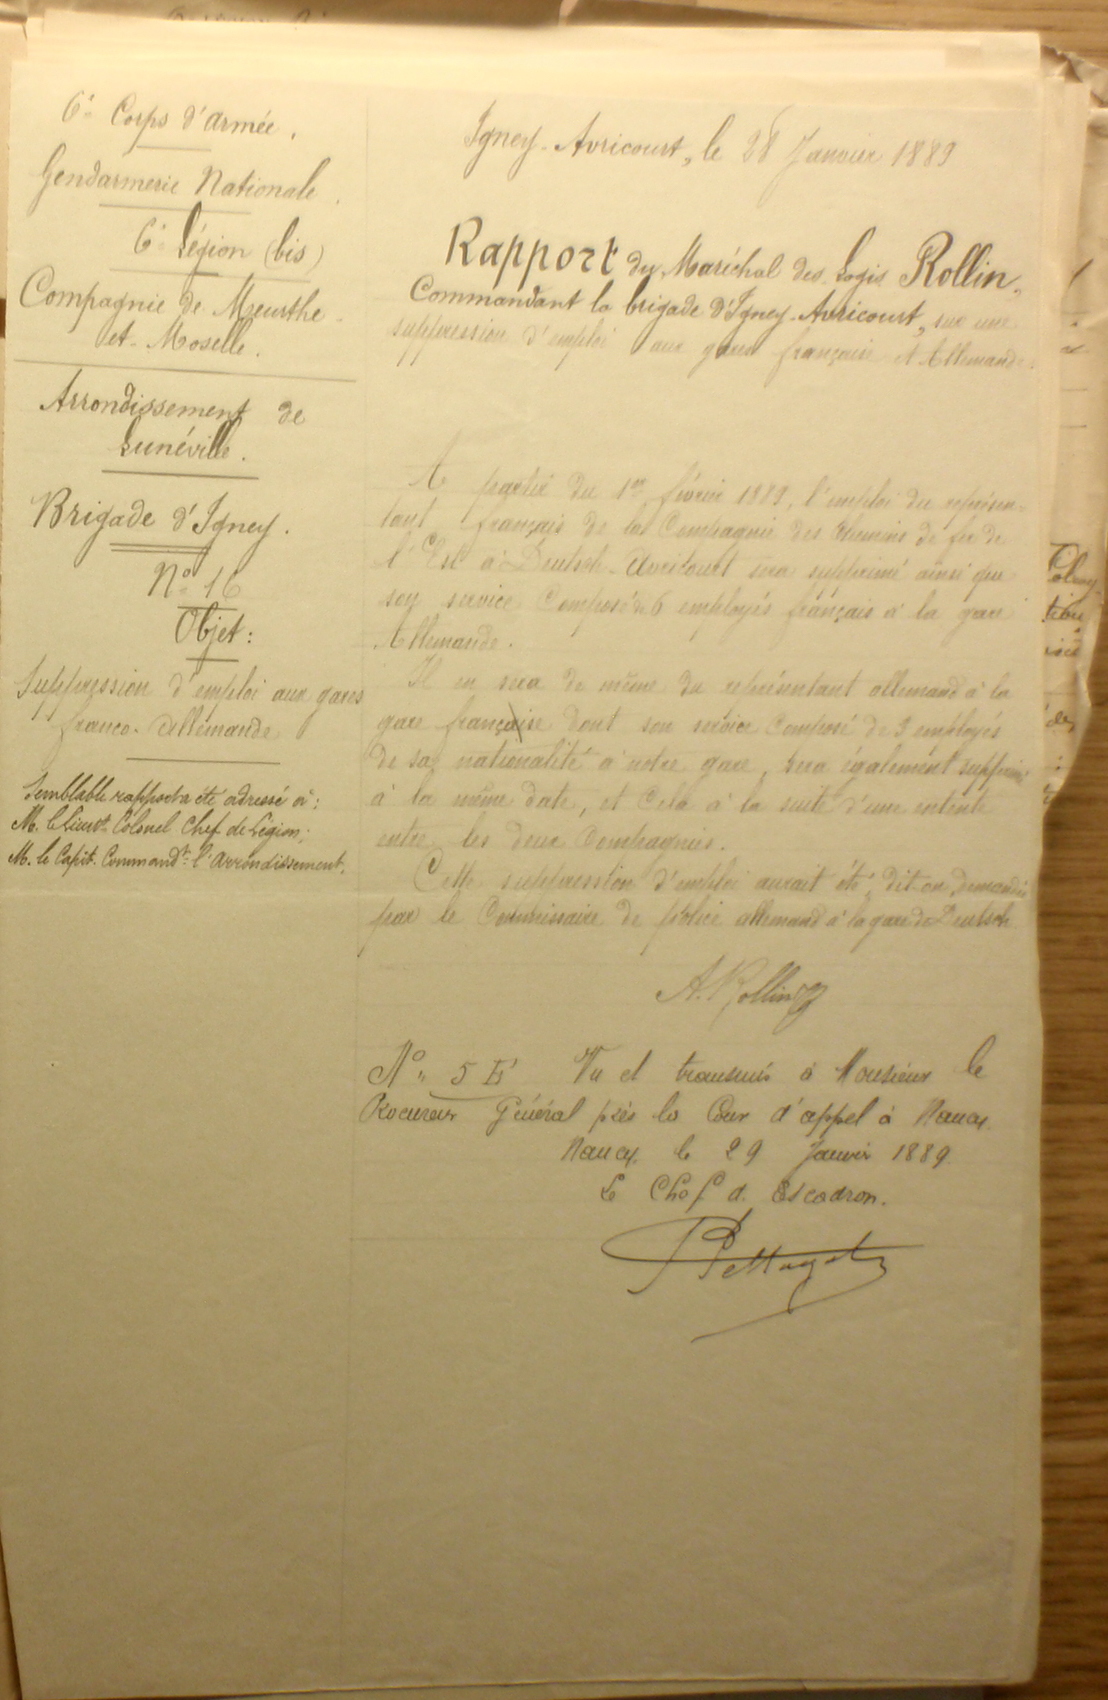 6e Corps d'armée.
Gendarmerie Nationale.
6e Légion (bis)
Compagnie de Meurthe-
et-Moselle.
Arrondissement de
Lunéville.
Brigade d'Igney.
N° 16
Objet:
Suppression d'emploi aux gares
franco-allemande
Semblable rapport a été adressé à:
M. le Lieut-Colonel Chef de Légion;
M. le Capit. Commandt l'arrondissement.
Igney-Avricourt, le 28 Janvier 1889
Rapport du Maréchal des Logis Rollin,
Commandant la brigade d'Igney-Avricourt, sur une
suppression d'emploi aux gares française et Allemande.
A partir du 1er février 1889, l'emploi du représen-
tant français de la Compagnie des Chemins de fer de
l'Est à Deutsch-Avricourt sera supprimé ainsi que
son service composé de 6 employés français à la gare
Allemande.
Il en sera de même du représentant allemand à la
gare française dont son service composé de 3 employés
de sa nationalité à notre gare, sera également supprimé
à la même date, et cela à la suite d'une entente
entre les deux Compagnies.
Cette suppression d'emploi aurait été, dit-on, demandée
par le Commissaire de police allemand à la gare de Deutsch
A. Rollin
N° 5 Vu et transmis à Monsieur le
Procureur Général près la Cour d'appel à Nancy.
Nancy, le 29 Janvier 1889
Le Chef d'Escadron.